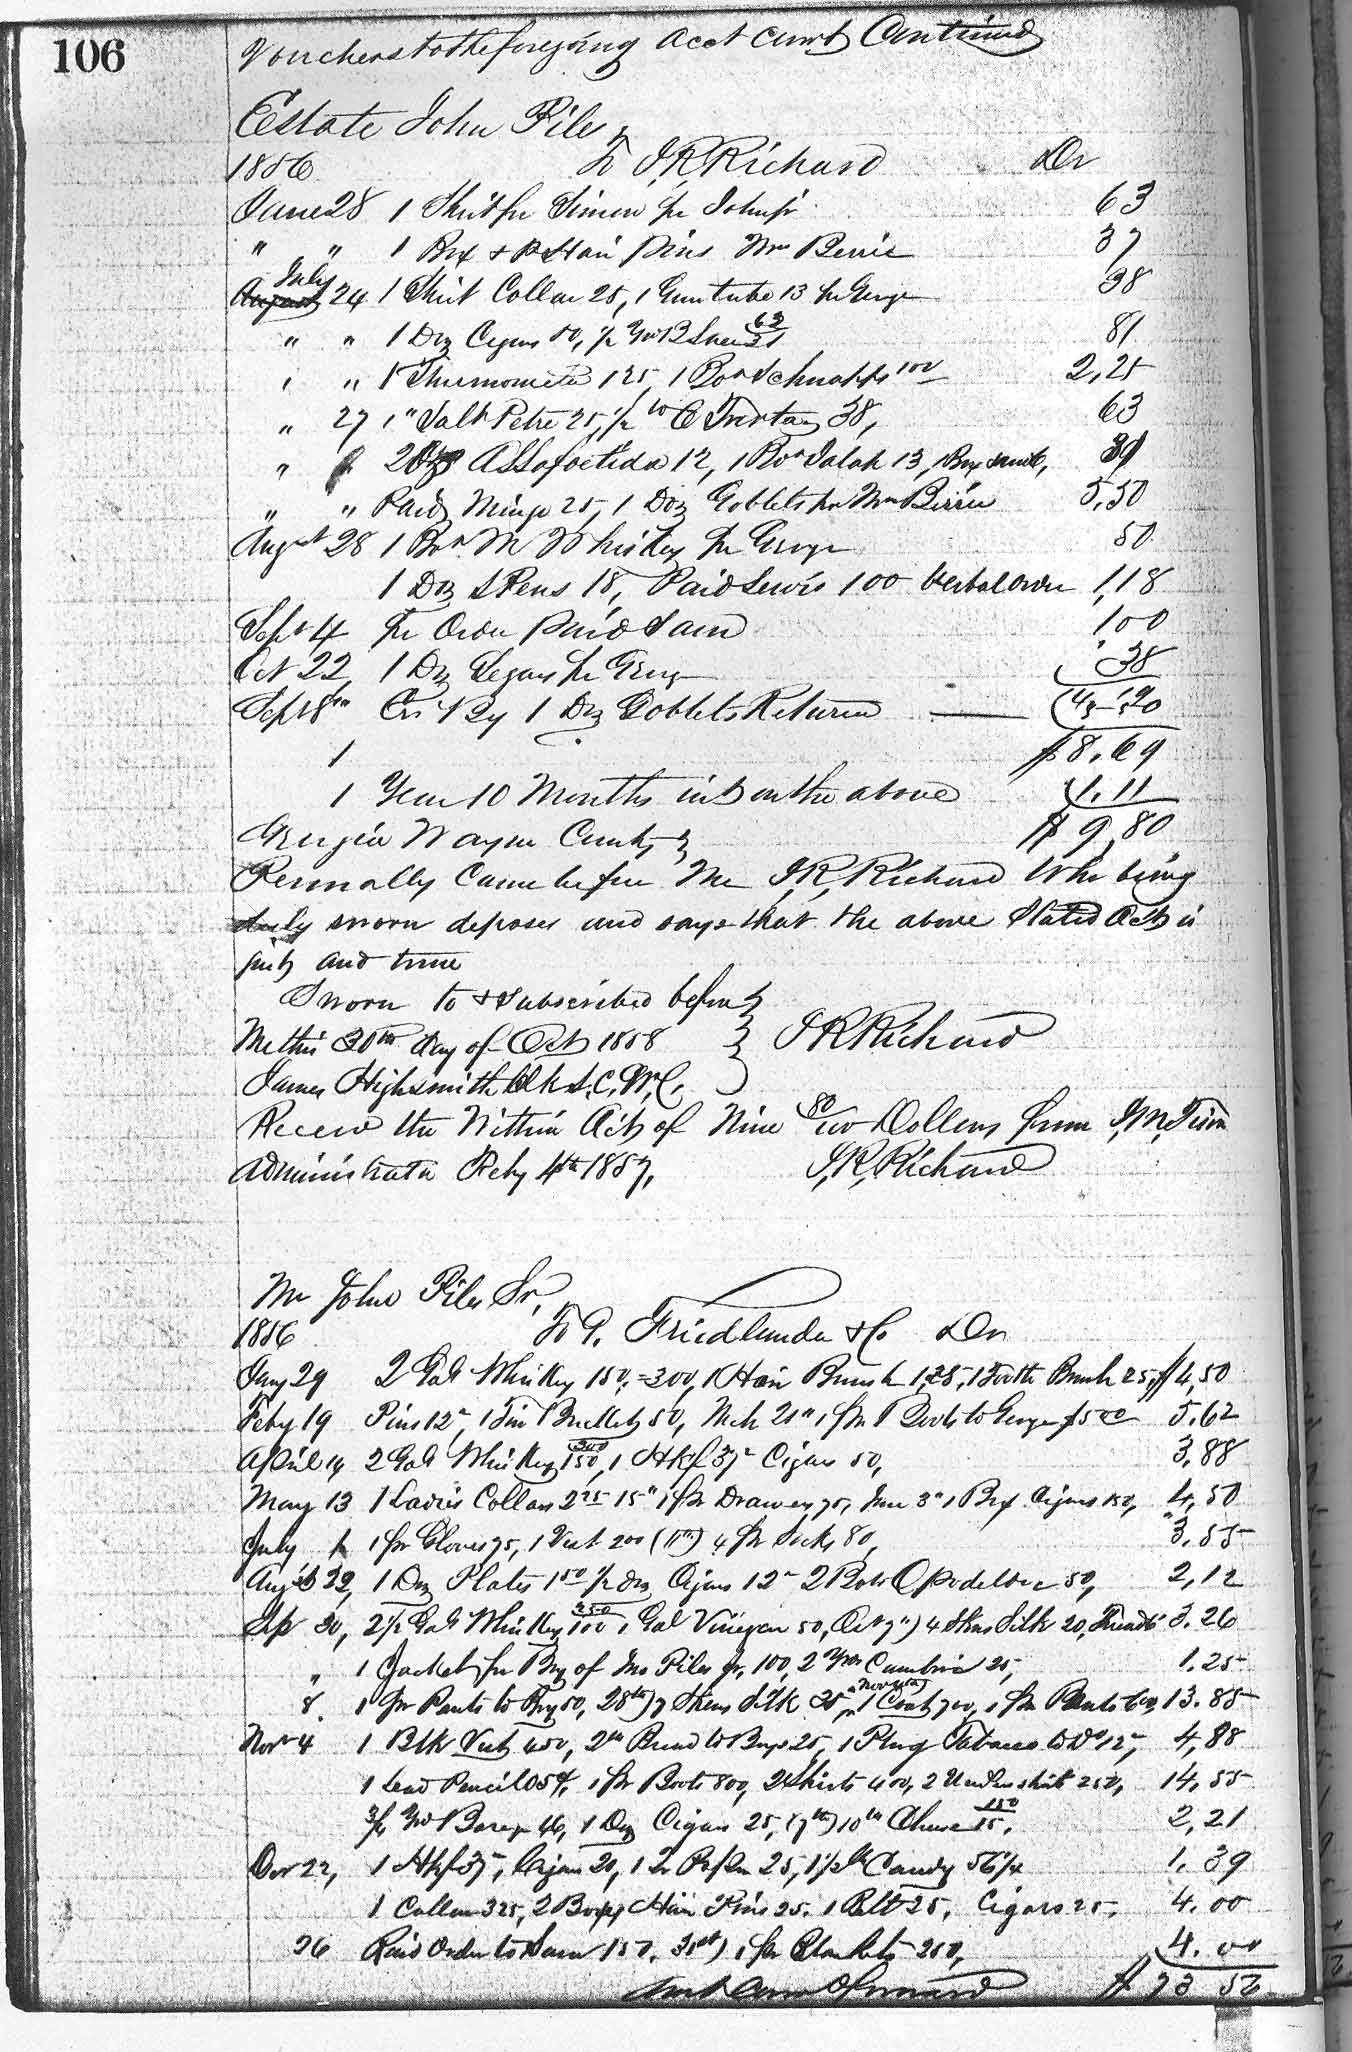 106
Vouchers to the foregoing acct curt Continued
Estate John Piles
1856 To J, R, Richard Dr
June 28 1 Shirt for Simon pr John jr 63
" " 1 Box + P Hair pins Mrs Berrie 37
July August 24 1 Shirt Collar 25, 1 Gun tube 13 pr George 38
" " 1 Doz Cigars 50, ½ 62 81
" " 1 Thermometer 125 1 Bottle Schnapps 100 2,25
" 27 1 " Salt Petre 25, ½ " C Tartar 38, 63
" " 2 Oz Assafoetida 12, 1 Box Salab 13, 1 Box 39
" " Paid Mingo 25, 1 Doz Goblets pr Mrs Berrie 5,50
August 28 1 Bott M Whiskey pr George 50
1 Doz S Pens 18, Paid Lewis 100 Verbal order 1,18
Sept 4 pr Order paid Sam 100
Oct 22, 1 Dz Segars pr George 38
Sept 8th Cr By 1 Doz Goblets Returned
$8.69
1
1 Year 10 Months int on the above 1.11
Georgia Wayne County $9,80
Personally Came before Me J, R, Richard Who being
duly sworn deposes and says that the above Stated Act is
just and true
Sworn to + subscribed before
Me this 30th day of Oct 1858 J R Richard
James Highsmith Clk S. C, W, C,
Received the Within Act of Nine 80/100 Dollars from J, M, Tison
Administrator Feby 4th 1857, J, R, Richard
Mr John Piles Sr,
1856 To A. Friedlander & Co Dr
Jany 29 2 Gal Whiskey 150, =300, 1 Hair Brush 1,25, 1 Tooth Brush 25, $4,50
Feby 19 Pins 12" 1 Tin Bucket 50, 1 pr Boots to George $500 5,62
April 14 2 Gal Whiskey 300 150, 1 Hkf 37" Cigars 50, 3,88
May 13 1 Ladies Collar 225 15" 1 pr Drawers 75, June 3" 1 Box Cigars 150, 4,50
July 1 1 pr Gloves 75, 1 Vest 200 (11th) 4 pr Socks 80, 3.55
Augst 22, 1 Doz Plates 150 ½ doz Cigars 12" 2 Bots Opodeldoc 50, 2,12
Sep 30, 2½ Gal Whiskey 250 100 1 Gal Vinegar 50, Oct 7") 4 Skns Silk 20, Thread 6 3.26
" 1 Jacket for Boy of Jno Piles Jr, 100, 2 Yds Cambric 25, 1.25
8 1 pr Pants to Boy 50, 28th) 7 Skeins Silk 35, November 1 Coat 700, 1 pr Pants 600, 13.85
Novr 4 1 Blk Vest 450, 2" Bread to Boys 25, 1 Plug Tobacco to Do 12", 4,88
1 lead Pencil 05¢, 1 pr Boots 800, 2 Shirts 400, 2 Undershirt 250, 14,55
¾ Yd Barege 46, 1 Doz Cigars 25, (7th) 10 lb Cheese 150 15, 2,21
Dec 22, 1 Hkf 37", Cigars 20, 1 Qr Pap 25, 1½ lb Candy 56¼ 1.39
1 Collar 325, 2 Boxes Hair Pins 25, 1 Belt 25, Cigars 25, 4.00
26 Paid Order to Sam 150, 31st) 1 pr Blankets 250, 4.00
Amt Carr'd forward $73 56